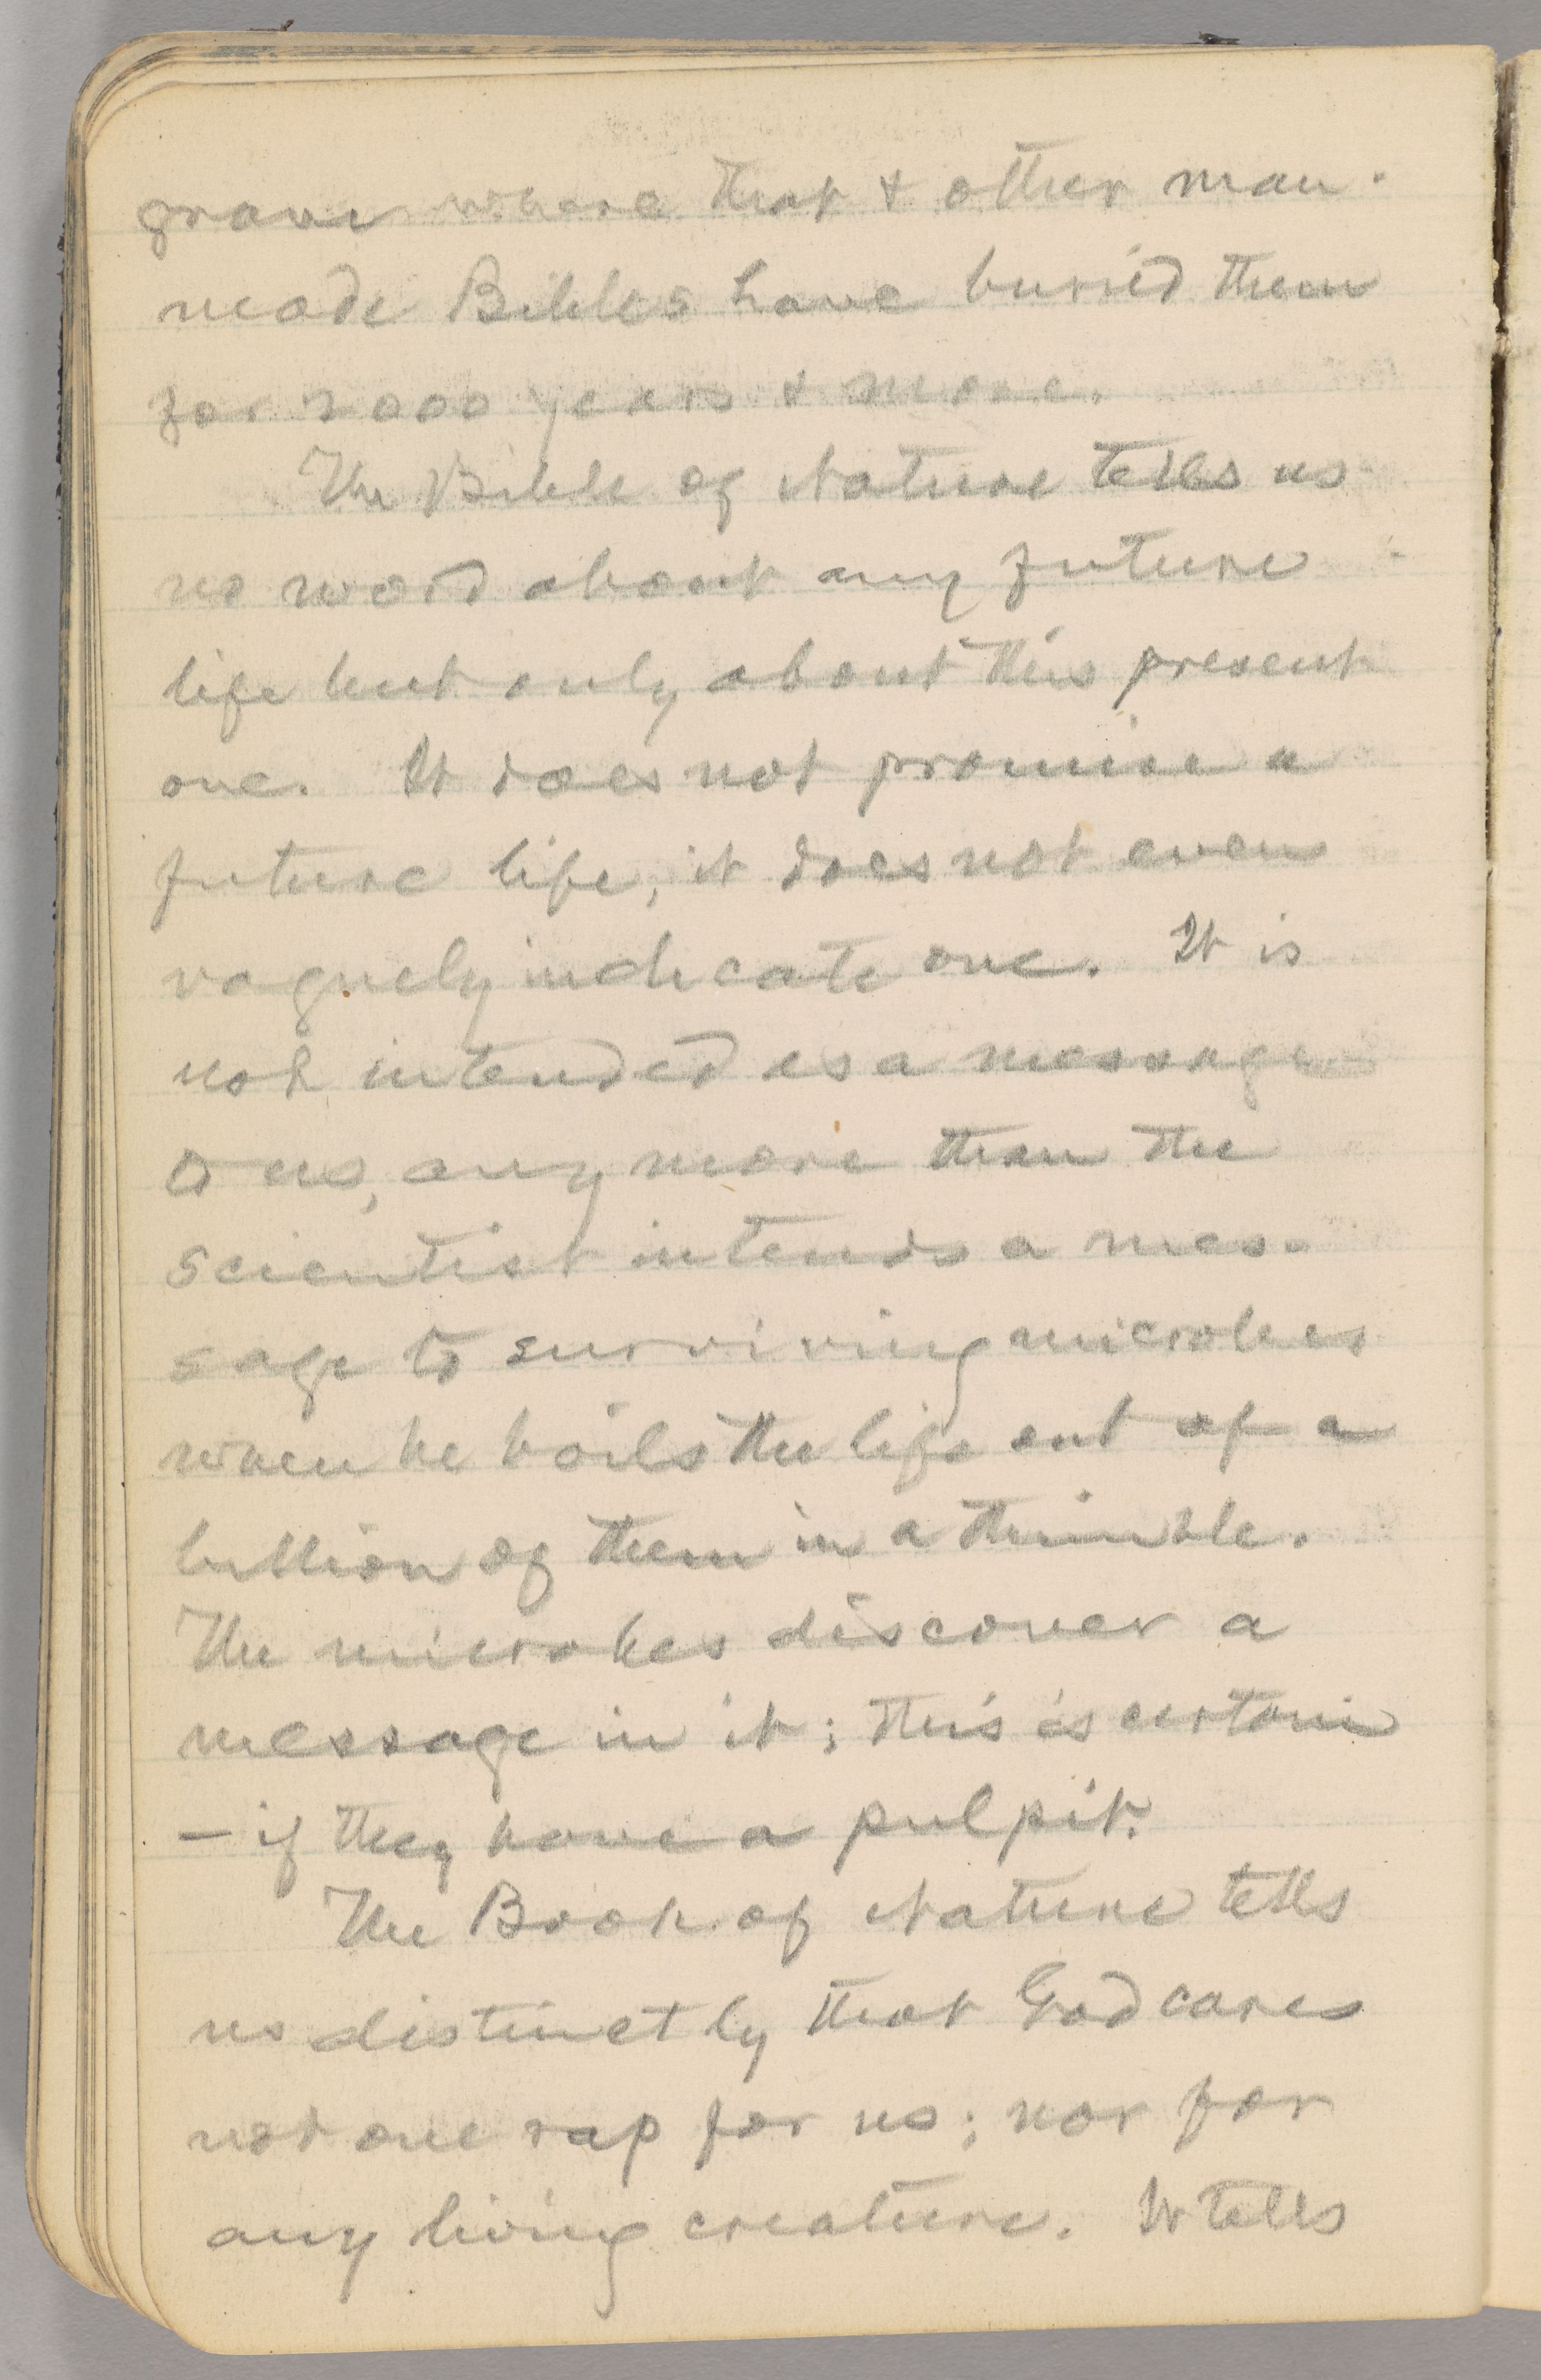 grave where that & other man-
made Bibles have buried them
for 2000 years & more.
The Bible of Nature tells us
no word about any future
life but only about this present
one. It does not promise a
future life, it does not even
vaguely indicate one. It is
not intended as a message
to us, any more than the
scientist intends a mes-
sage to surviving microbes
when he boils the life out of a
billion of them in a thimble.
The microbes discover a
message in it; this is certain
— if they have a pulpit.
The Book of Nature tells
us distinctly that God cares
not one rap for us; nor for
any living creature. It tells